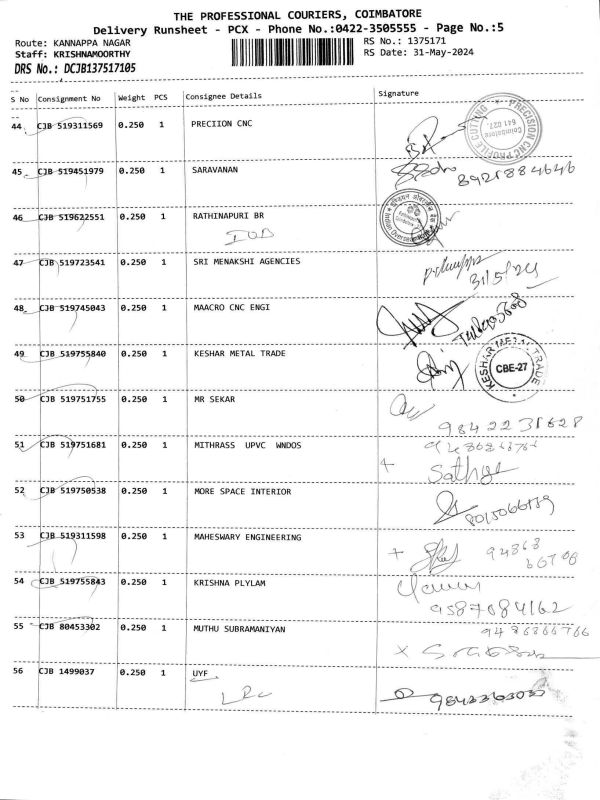 THE PROFESSIONAL COURIERS, COIMBATORE
Delivery Runsheet - PCX - Phone No.:0422-3505555 - Page No.:5
Route: KANNAPPA NAGAR
RS No.: 1375171
Staff: KRISHNAMOORTHY
RS Date: 31-May-2024
DRS No.: DCJB137517105
S No Consignment No Weight PCS Consignee Details Signature
44 CJB 519311569 0.250 1 PRECIION CNC
PRECISION CNC PROFILE CUTTING
Coimbatore
641 027.
45 CJB 519451979 0.250 1 SARAVANAN
8921884646
46 CJB 519622551 0.250 1 RATHINAPURI BR
IOB
Indian Overseas
47 CJB 519723541 0.250 1 SRI MENAKSHI AGENCIES
31/5/24
48 CJB 519745043 0.250 1 MAACRO CNC ENGI
49 CJB 519755840 0.250 1 KESHAR METAL TRADE
KESHAR METAL TRADE
CBE-27
50 CJB 519751755 0.250 1 MR SEKAR
9842231628
51 CJB 519751681 0.250 1 MITHRASS UPVC WNDOS
Sathya
52 CJB 519750538 0.250 1 MORE SPACE INTERIOR
53 CJB 519311598 0.250 1 MAHESWARY ENGINEERING
94868
54 CJB 519755843 0.250 1 KRISHNA PLYLAM
9587084162
55 CJB 80453302 0.250 1 MUTHU SUBRAMANIYAN
56 CJB 1499037 0.250 1 UYF